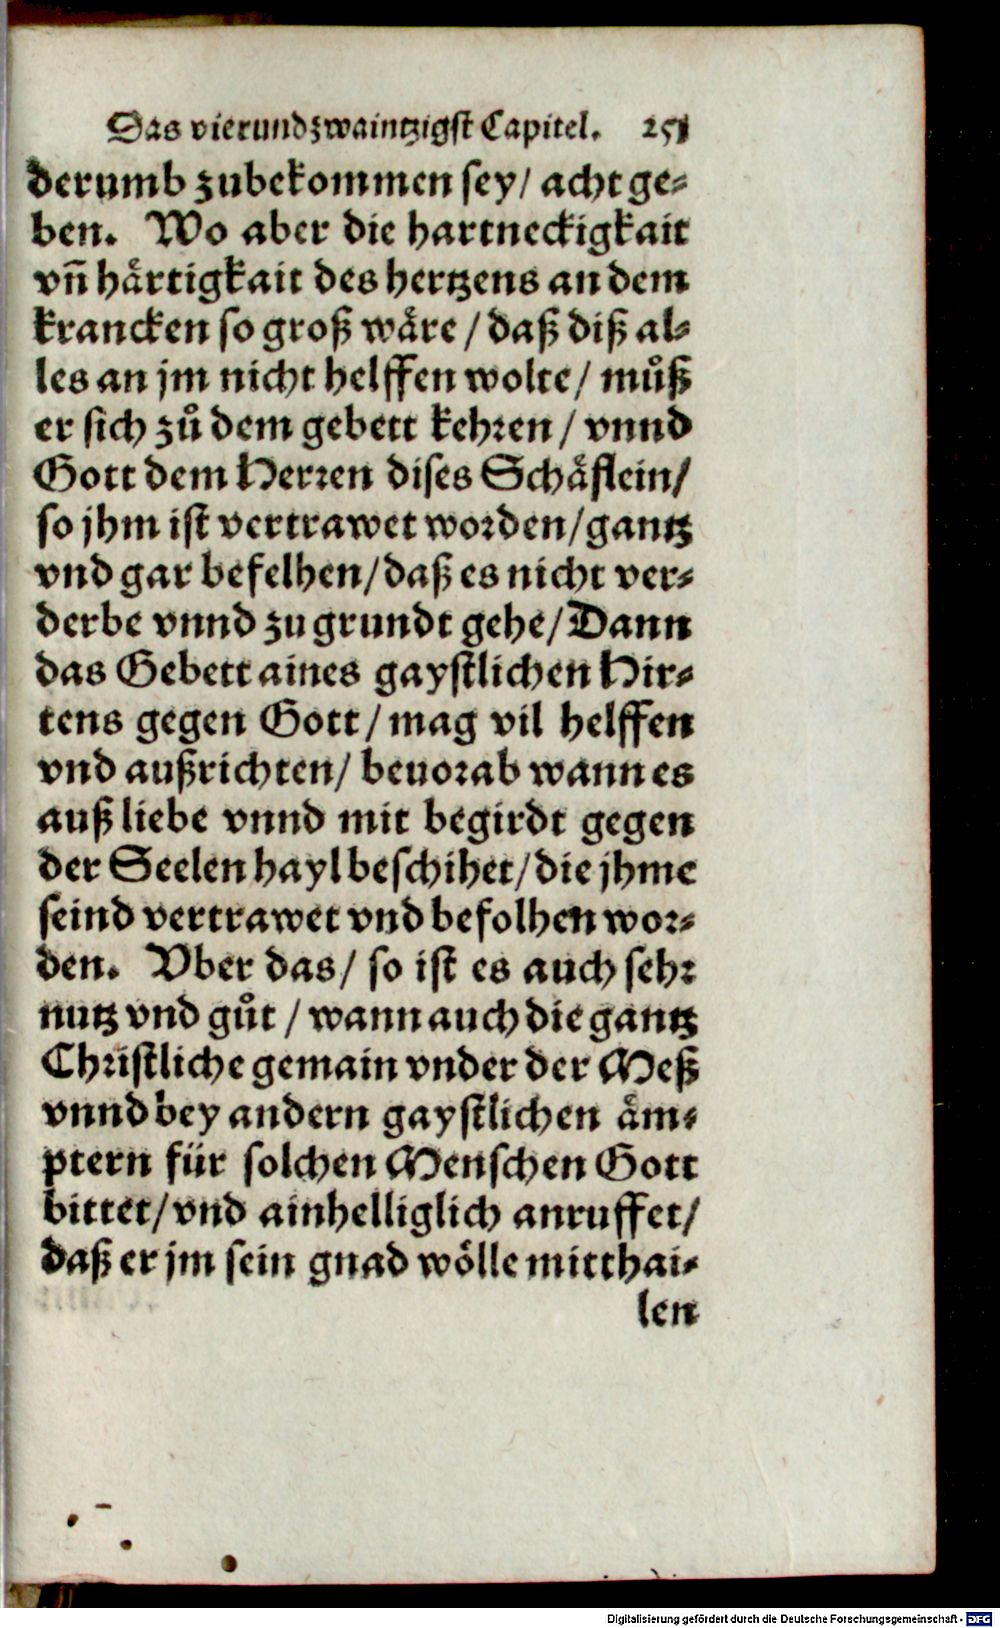 Das vierundzwaintzigst Capitel. 251
derumb zubekommen sey/ acht ge⸗
ben. Wo aber die hartneckigkait
vñ haͤrtigkait des hertzens an dem
krancken so groß waͤre / daß diß al⸗
les an jm nicht helffen wolte/ muͦß
er sich zuͦ dem gebett kehren / vnnd
Gott dem Herren dises Schaͤflein/
so jhm ist vertrawet worden/gantz
vnd gar befelhen/daß es nicht ver⸗
derbe vnnd zu grundt gehe/Dann
das Gebett aines gaystlichen Hir⸗
tens gegen Gott/mag vil helffen
vnd außrichten/ beuorab wann es
auß liebe vnnd mit begirdt gegen
der Seelen hayl beschihet/die jhme
seind vertrawet vnd befolhen wor⸗
den. Vber das/ so ist es auch sehr
nutz vnd guͦt / wann auch die gantz
Christliche gemain vnder der Meß
vnnd bey andern gaystlichen aͤm⸗
ptern für solchen Menschen Gott
bittet/vnd ainhelliglich anruffet/
daß er jm sein gnad woͤlle mitthai⸗
len
Digitalisierung gefördert durch die Deutsche Forschungsgemeinschaft - DFG